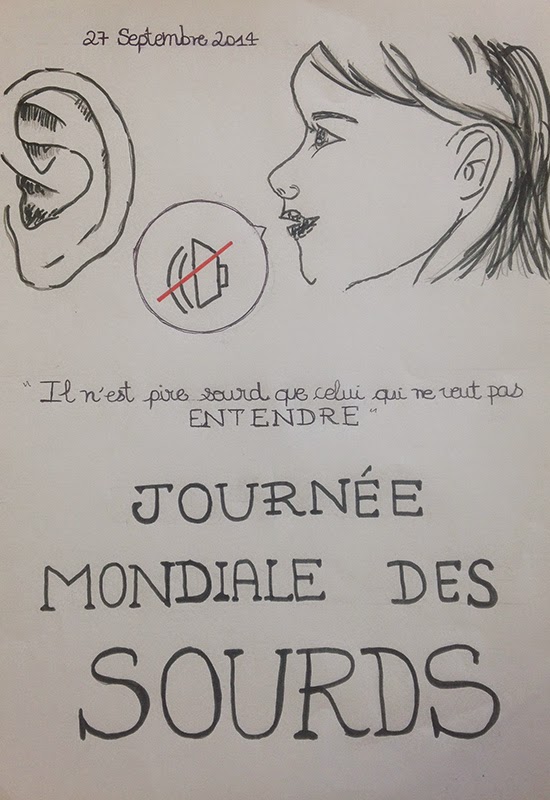 27 Septembre 2014
"Il n'est pire sourd que celui qui ne veut pas
ENTENDRE"
JOURNÉE
MONDIALE DES
SOURDS